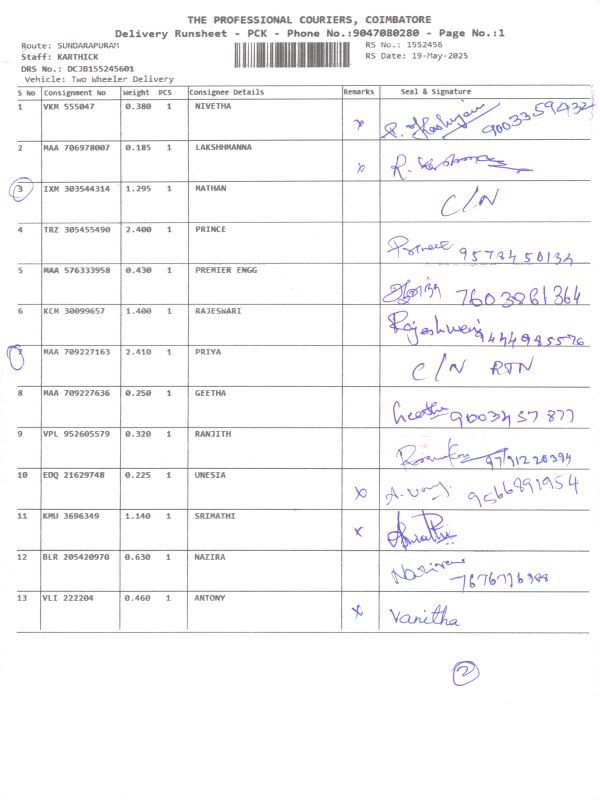 THE PROFESSIONAL COURIERS, COIMBATORE
Delivery Runsheet - PCK - Phone No.:9047080280 - Page No.:1
Route: SUNDARAPURAM RS No.: 1552456
Staff: KARTHICK RS Date: 19-May-2025
DRS No.: DCJB155245601
Vehicle: Two Wheeler Delivery
S No Consignment No Weight PCS Consignee Details Remarks Seal & Signature
1 VKM 555047 0.380 1 NIVETHA 9003359432
2 MAA 706978007 0.185 1 LAKSHHMANNA
3 IXM 303544314 1.295 1 MATHAN C/N
4 TRZ 305455490 2.400 1 PRINCE
5 MAA 576333958 0.430 1 PREMIER ENGG 7603861364
6 KCM 30099657 1.400 1 RAJESWARI Rajeshwari 9444985576
7 MAA 709227163 2.410 1 PRIYA C/N RTN
8 MAA 709227636 0.250 1 GEETHA Geetha 9003457877
9 VPL 952605579 0.320 1 RANJITH
10 EDQ 21629748 0.225 1 UNESIA x 9566891954
11 KMU 3696349 1.140 1 SRIMATHI x
12 BLR 205420970 0.630 1 NAZIRA
13 VLI 222204 0.460 1 ANTONY x Vanitha
2